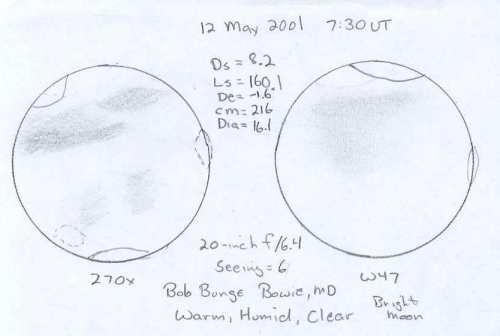 12 May 2001 7:30 UT
Ds = 8.2
Ls = 160.1
De = -1.6°
cm = 216
Dia = 16.1
20-inch f/6.4
Seeing = 6
270x
W47
Bob Bunge Bowie, MD
Warm, Humid, Clear
Bright
moon